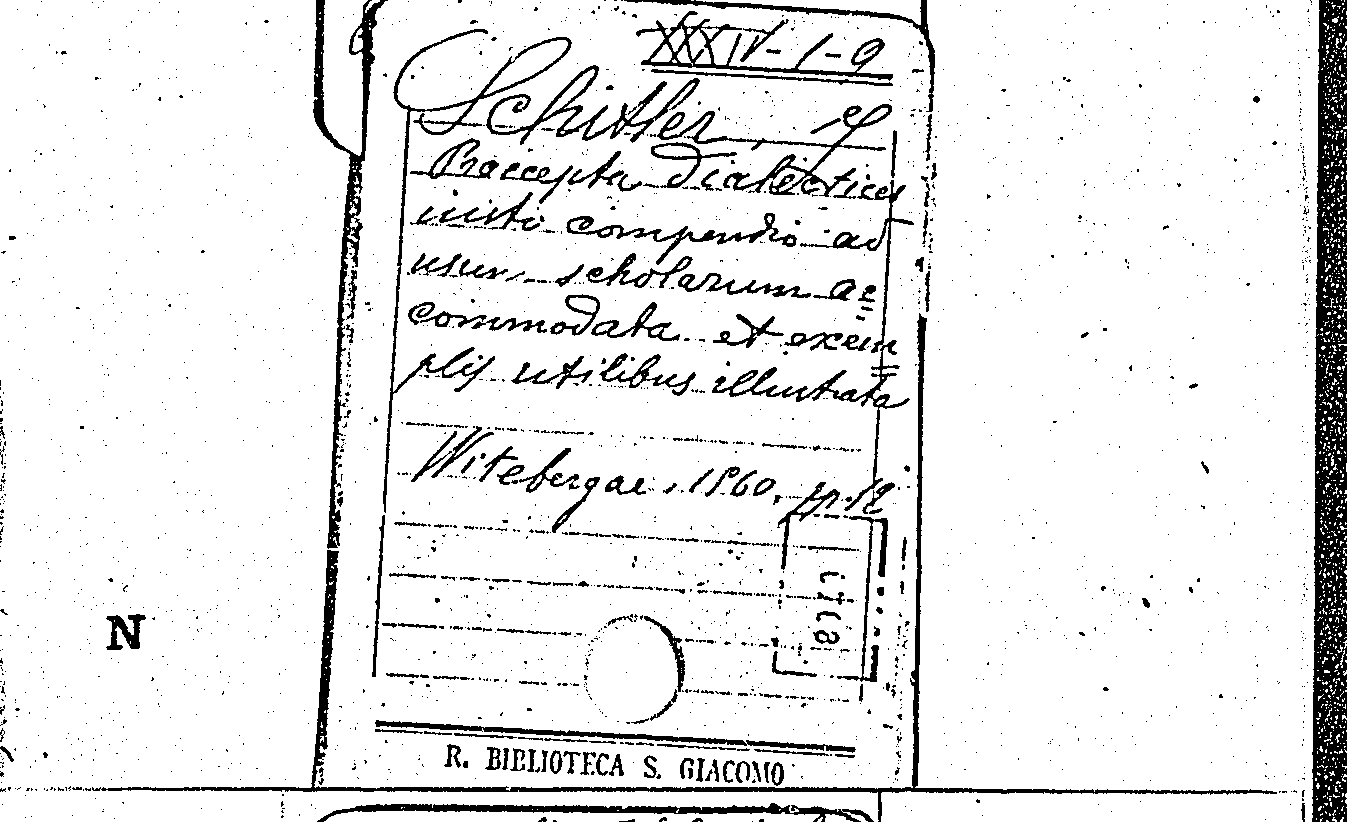 XXXIV-1-9
Schitler, J
Praecepta Dialectices
iusto compendio ad
usum scholarum ac=
commodata et exem=
plis utilibus illustrata
Witebergae, 1560, pp. 12
N
R. BIBLIOTECA S. GIACOMO